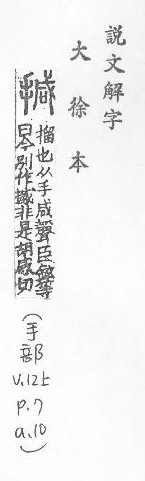 説文解字
大徐本
㨔 搖也从手咸聲臣鉉等
曰今別作撼非是胡感切
(手部
V.12上
p.7
a.10)